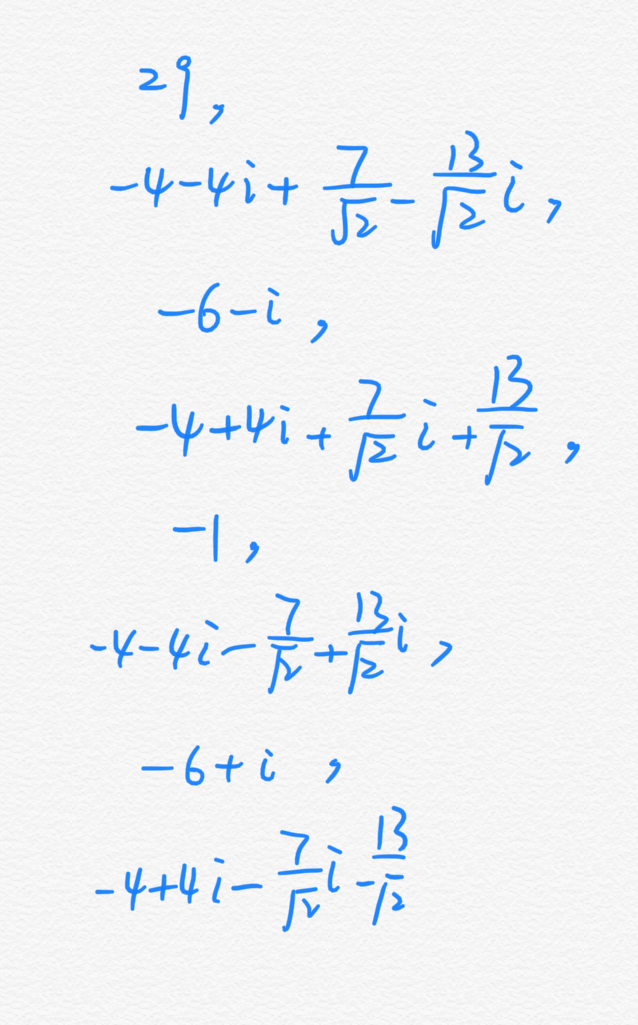 29,
-4-4i+\frac{7}{\sqrt{2}}-\frac{13}{\sqrt{2}}i,
-6-i,
-4+4i+\frac{7}{\sqrt{2}}i+\frac{13}{\sqrt{2}},
-1,
-4-4i-\frac{7}{\sqrt{2}}+\frac{13}{\sqrt{2}}i,
-6+i,
-4+4i-\frac{7}{\sqrt{2}}i-\frac{13}{\sqrt{2}}